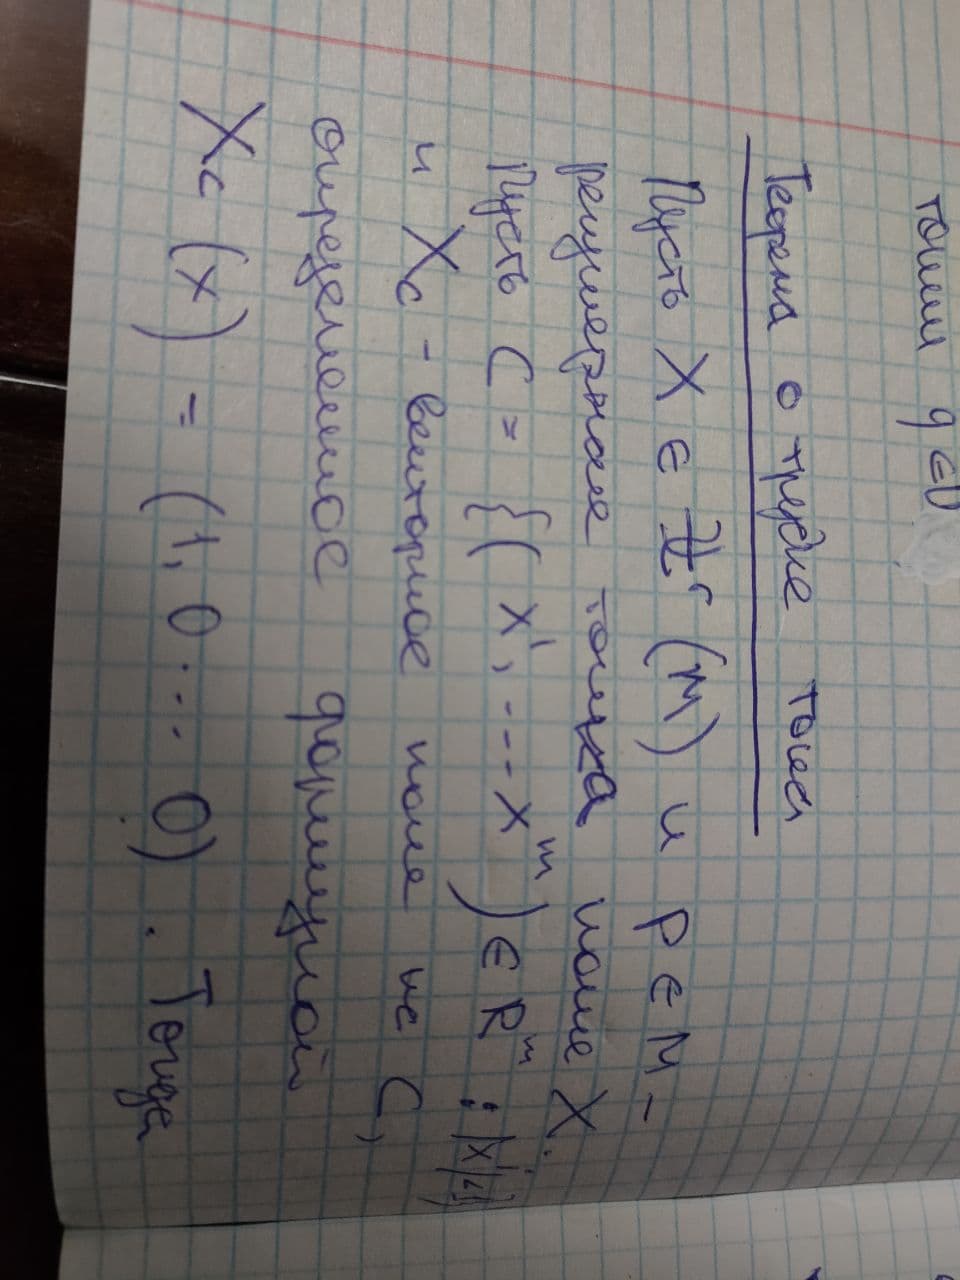 точки q ∈ U
Теорема о трубке тока
Пусть X ∈ 𝔛ʳ (M) и p ∈ M –
регулярная точка поля X.
Пусть C = {(x¹, --- xᵐ) ∈ Rᵐ : |xⁱ|<1}
и X_C – векторное поле на C,
определенное формулой
X_C (x) = (1, 0 ... 0). Тогда